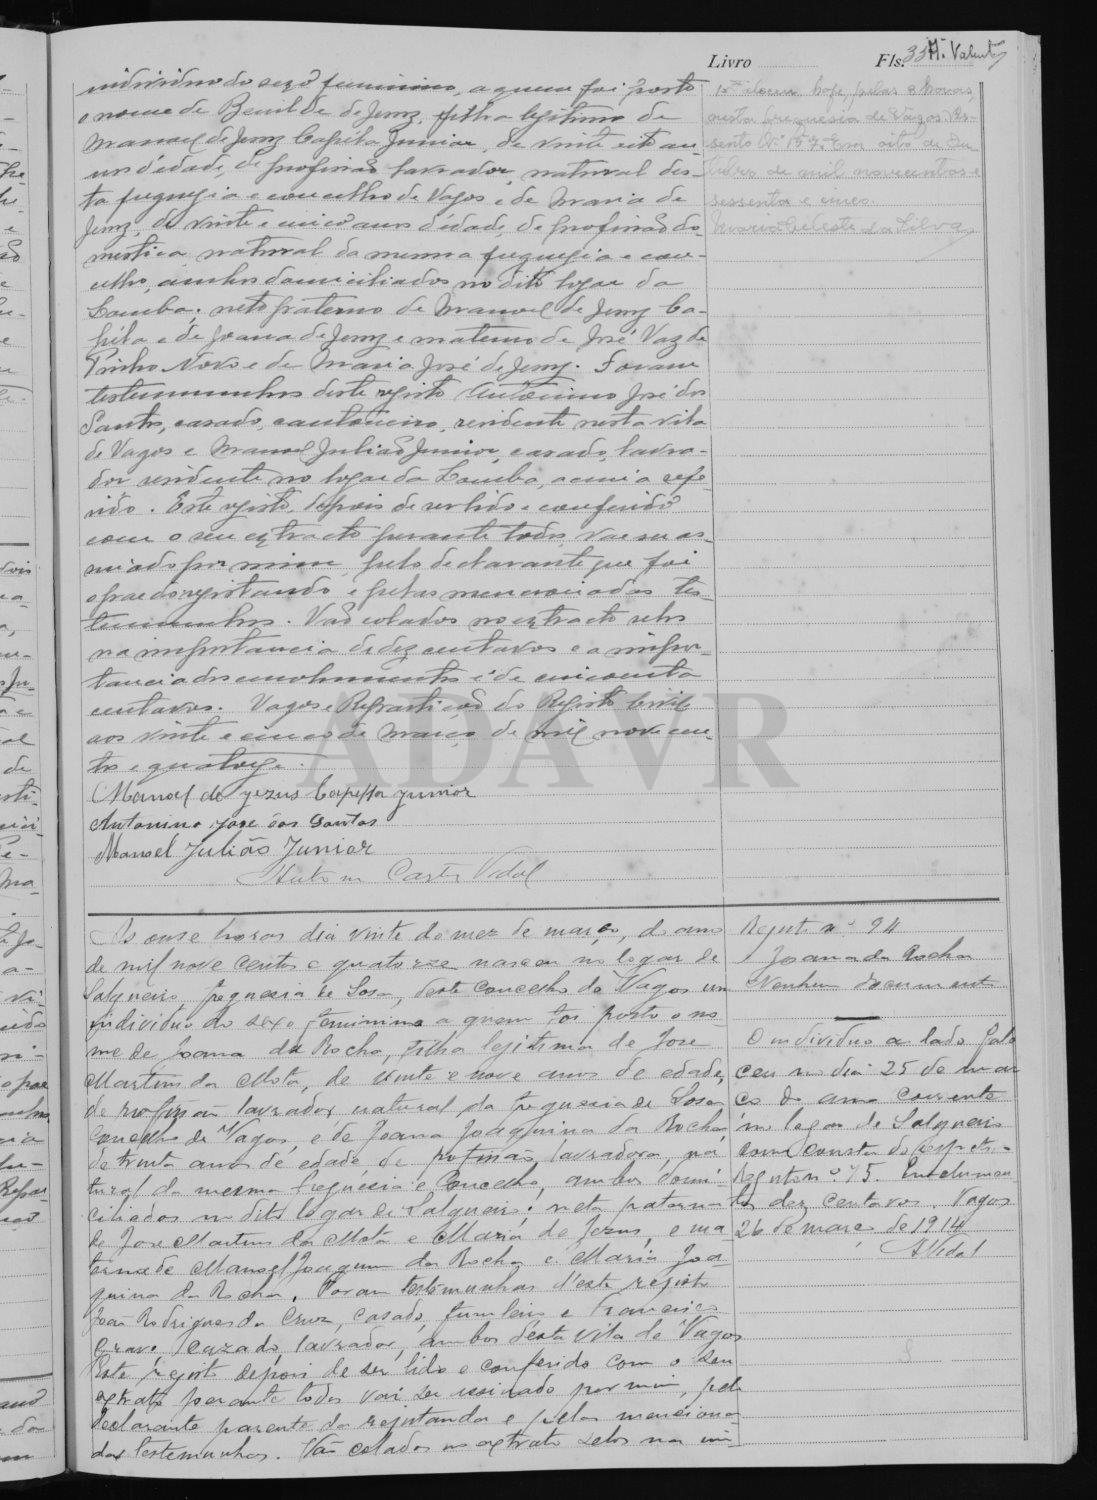 Livro Fls. 33
A. Valente
individuo do sexo feminino, a quem foi posto
o nome de Benilde de Jesus, filha legitima de
Manuel de Jesus Capéla Junior, de vinte e
nos d'edade, de profissão lavrador, natural des-
ta freguesia e concelho de Vagos e de Maria de
Jesus, de vinte e cinco anos d'edade, de profissão do-
mestica natural da mesma freguesia e con-
celho, ambos domiciliados no dito logar da
Lomba; neto paterno de Manuel de Jesus Ca-
péla e de Joana de Jesus e materno de José Vaz de
Pinho Novo e de Maria José de Jesus. Foram
testemunhas deste registo Antonino José dos
Santos, casado, cantoneiro, residente nesta vila
de Vagos e Manuel Julião Junior, casado, lavra-
dor residente no logar da Lomba, acima refe-
rido. Este registo, depois de ser lido e conferido
com o seu extracto perante todos, vae ser as-
sinado por mim, pelo declarante que foi
o pae do registando e pelas mencionadas tes-
temunhas. Vão colados no extracto selos
na importancia de dez centavos e a impor-
tancia dos emolumentos é de cincoenta
centavos. Vagos e Repartição do Registo Civil
aos vinte e cinco de Março de mil novecen-
tos e quatorze.
Manoel de Jezus Capella Junior
Antonino Jose dos Santos
Manoel Julião Junior
Vidal
hoje, pelas horas,
nesta freguesia de Vagos. As-
sento Nº 157. Em oito de
de mil novecentos e
sessenta e cinco.
Maria Celeste da Silva
As onze horas dia vinte do mez de março, do ano
de mil nove centos e quatorze nasceu no logar de
Salgueiro, freguesia de Sosa, deste concelho de Vagos um
individuo do sexo feminino a quem foi posto o no-
me de Joana da Rocha, filha legitima de Jose
Martins da Mota, de vinte e nove anos de edade,
de profissão lavrador, natural da freguesia de Sosa,
Concelho de Vagos, e de Joana Joaquina da Rocha,
de trinta anos de edade, de profissão lavradora, na-
tural da mesma freguesia e Concelho, ambos domi-
ciliados no dito logar de Salgueiro; neta paterna
de Jose Martins da Mota e Maria de Jezus, e ma-
terna de Manoel Joaquim da Rocha e Maria Joa-
quina da Rocha. Foram testemunhas d'este registo
João Rodrigues da Cruz, casado, funileiro e Francisco
Gravo, cazado, lavrador, ambos desta vila de Vagos
Este registo depois de ser lido e conferido com o seu
extrato perante todos vai ser assinado por mim, pelo
declarante parente da registanda e pelas menciona-
das testemunhas. Vão colados no extrato selos na im-
Registo nº 94
Joana da Rocha
Nenhum documento
O individuo ao lado fale-
ceu no dia 25 de mar-
ço do ano corrente
no logar de Salgueiro
como consta do respectivo
Registo nº 75. Emolumen-
tos dez centavos. Vagos
26 de março de 1914
AVidal
ADAVR